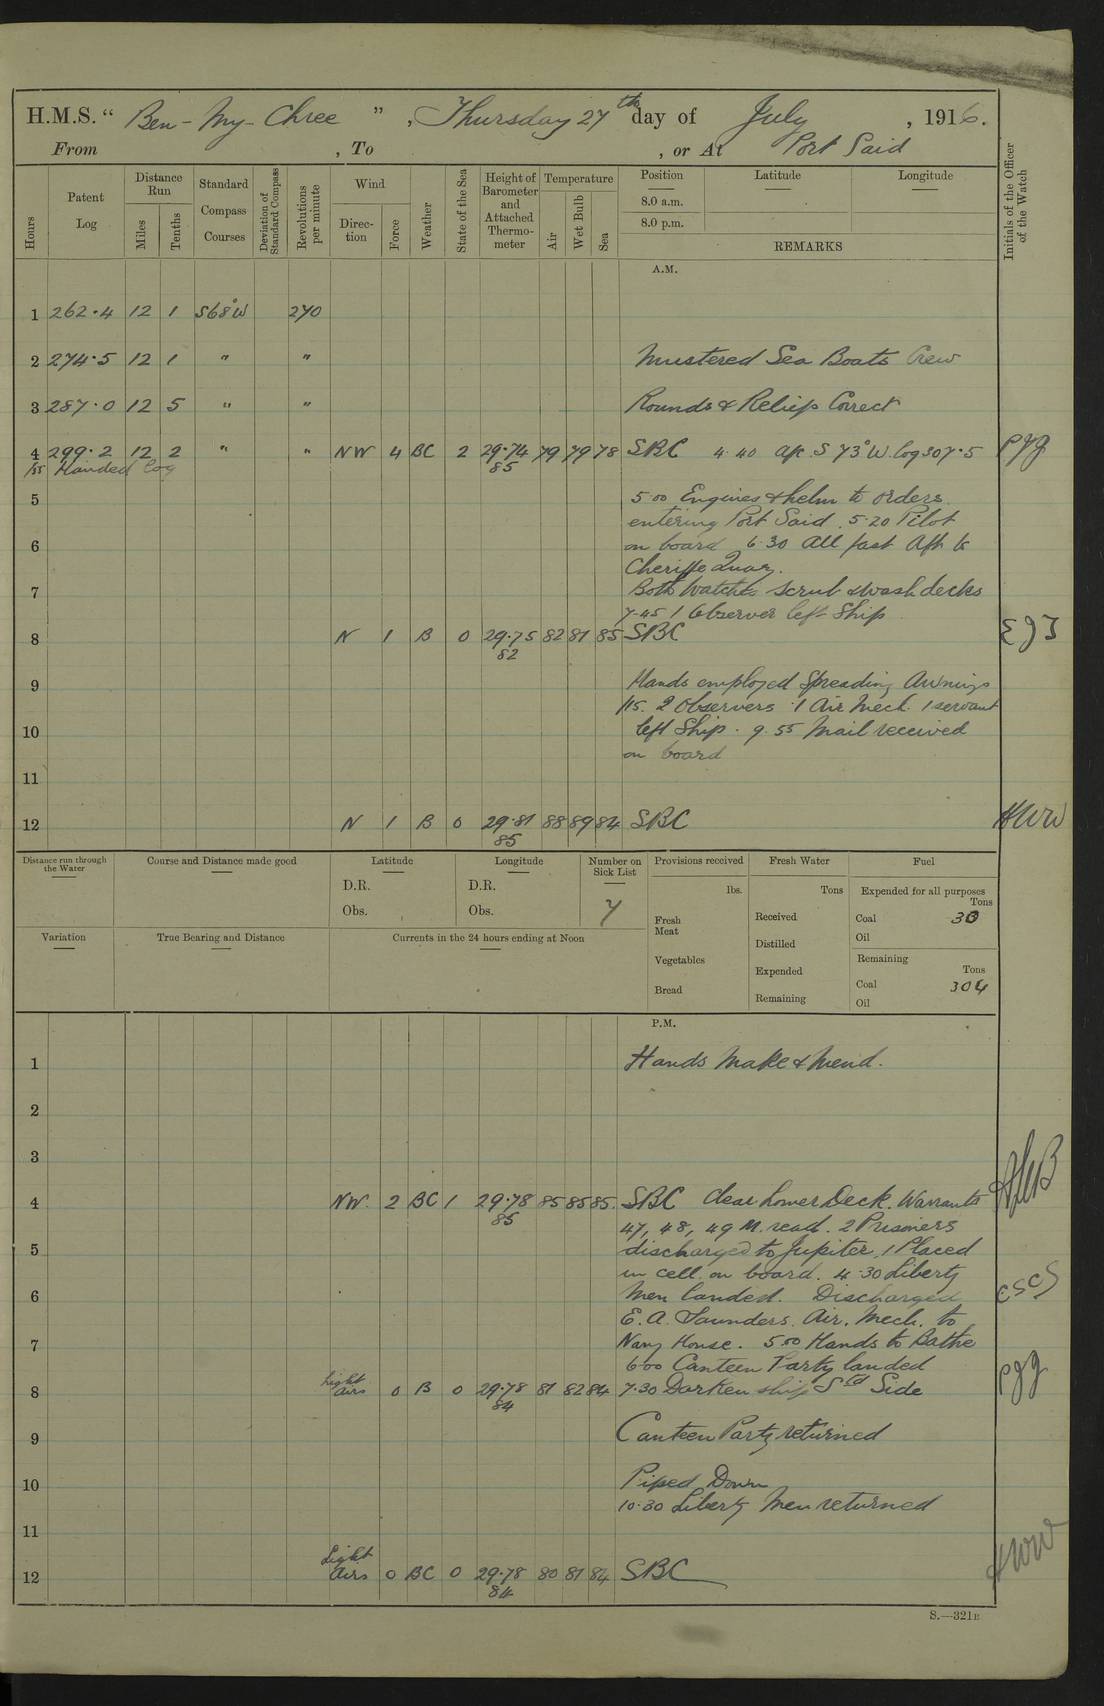 H.M.S. “ Ben-My-Chree ” , Thursday 27th day of July , 1916.
From , To , or At Port Said
Hours
Patent Log
Distance Run
Miles
Tenths
Standard Compass Courses
Deviation of Standard Compass
Revolutions per minute
Wind
Direc-tion
Force
Weather
State of the Sea
Height of Barometer and Attached Thermo-meter
Temperature
Air
Wet Bulb
Sea
Position
8.0 a.m.
8.0 p.m.
Latitude
Longitude
REMARKS
Initials of the Officer of the Watch
A.M.
1 262.4 12 1 S68°W 270
2 274.5 12 1 " " Mustered Sea Boats Crew
3 287.0 12 5 " " Rounds & Reliefs Correct
4 299.2 12 2 " " NW 4 BC 2 29.74 79 79 78 SBC 4.40 a/c S 73°W. log 307.5 PJG
/55 Handed log 85
5 5.00 Engines & helm to orders
entering Port Said. 5.20 Pilot
6 on board 6.30 All fast Aft to
Cheriffe Quay.
7 Both Watches scrub & wash decks
7.45 1 Observer left Ship
8 N 1 B 0 29.75 82 81 85 SBC EJT
82
9 Hands employed Spreading Awnings
/15. 2 Observers 1 Air Mech. 1 servant
10 left Ship. 9.55 Mail received
on board
11
12 N 1 B 0 29.81 88 89 84 SBC HWW
85
Distance run through the Water
Course and Distance made good
Latitude
D.R.
Obs.
Longitude
D.R.
Obs.
Number on Sick List
7
Provisions received
lbs.
Fresh Meat
Vegetables
Bread
Fresh Water
Tons
Received
Distilled
Expended
Remaining
Fuel
Expended for all purposes
Tons
Coal 30
Oil
Remaining
Tons
Coal 304
Oil
Variation
True Bearing and Distance
Currents in the 24 hours ending at Noon
P.M.
1 Hands Make & Mend.
2
3
4 NW. 2 BC 1 29.78 85 85 85. SBC Clear Lower Deck. Warrants
85 47, 48, 49 M. read. 2 Prisoners
5 discharged to Jupiter, 1 Placed
in cell on board. 4.30 Liberty
6 Men landed. Discharged
E.A. Saunders. Air. Mech. to
7 Navy House. 5.00 Hands to Bathe
6.00 Canteen Party landed
8 Light airs 0 B 0 29.78 81 82 84 7.30 Darken ship Std Side PJG
84
9 Canteen Party returned
10 Piped Down
10.30 Liberty Men returned
11
12 Light airs 0 BC 0 29.78 80 81 84 SBC HWW
84
S.—321B